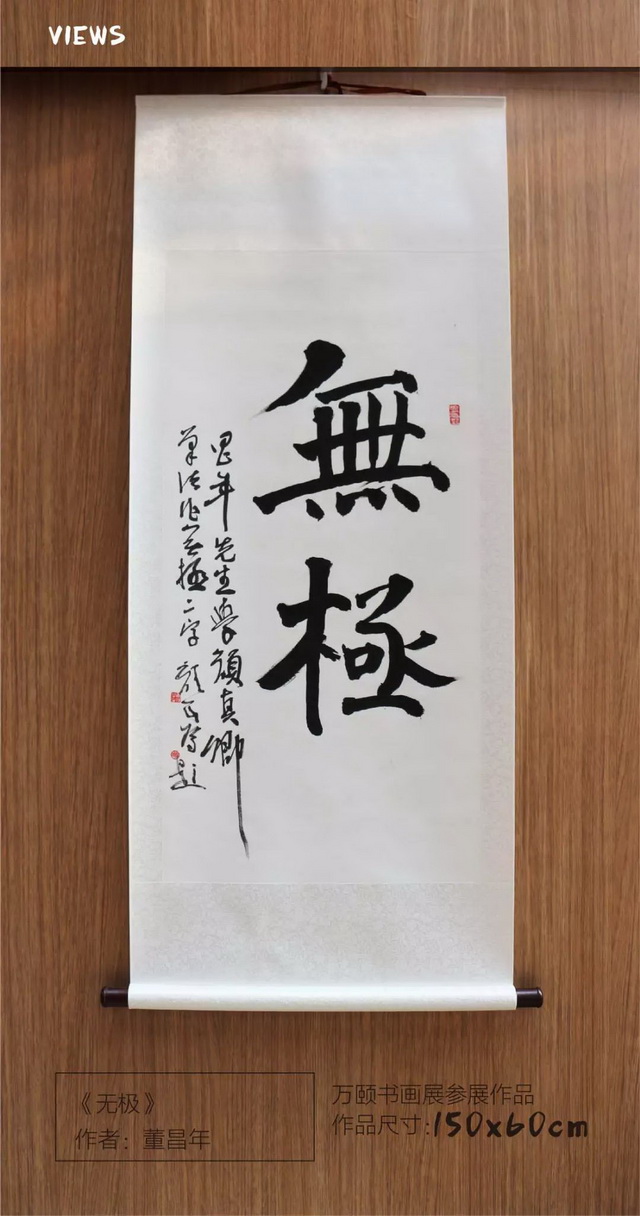 VIEWS
無
極
昌年先生學顏真卿
筆法作無極二字 題
《无极》
作者：董昌年
万颐书画展参展作品
作品尺寸：150x60cm